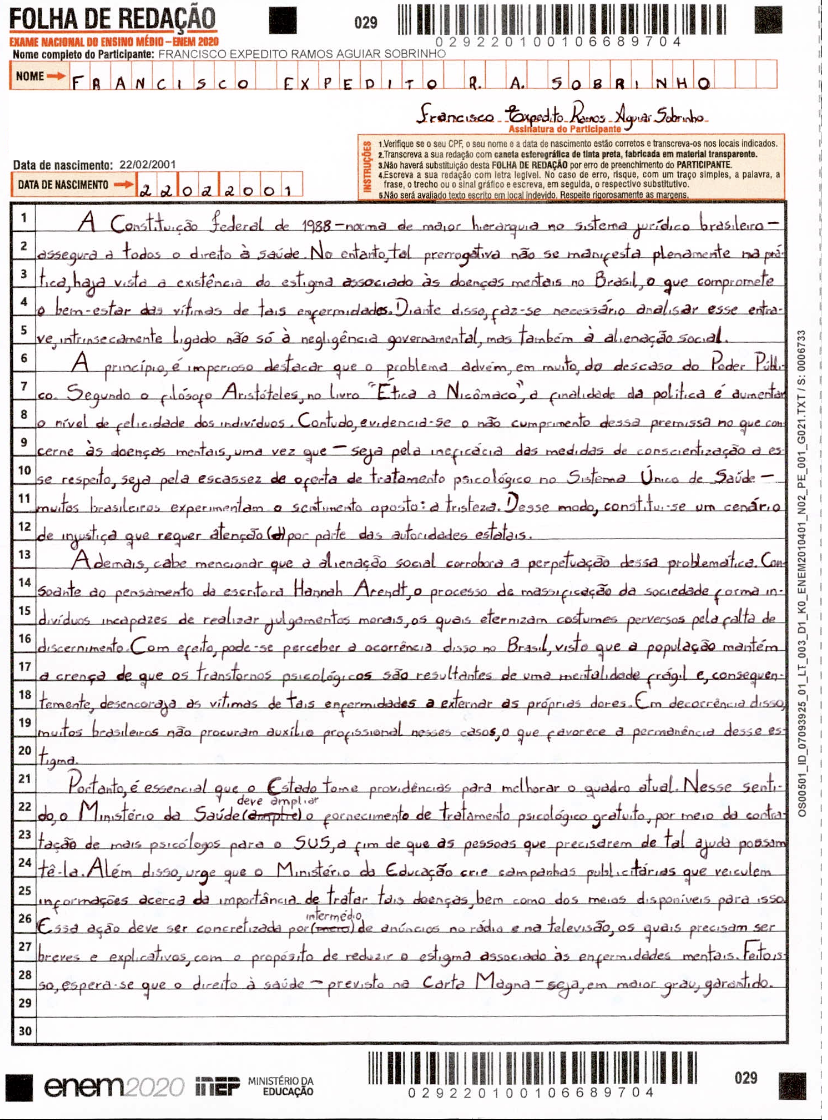 FOLHA DE REDAÇÃO
EXAME NACIONAL DO ENSINO MÉDIO – ENEM 2020
029
029220100106689704
Nome completo do Participante: FRANCISCO EXPEDITO RAMOS AGUIAR SOBRINHO
NOME FRANCISCO EXPEDITO R. A. SOBRINHO
Francisco Expedito Ramos Aguiar Sobrinho
Assinatura do Participante
Data de nascimento: 22/02/2001
DATA DE NASCIMENTO 22022001
INSTRUÇÕES
1.Verifique se o seu CPF, o seu nome e a data de nascimento estão corretos e transcreva-os nos locais indicados.
2.Transcreva a sua redação com caneta esferográfica de tinta preta, fabricada em material transparente.
3.Não haverá substituição desta FOLHA DE REDAÇÃO por erro de preenchimento do PARTICIPANTE.
4.Escreva a sua redação com letra legível. No caso de erro, risque, com um traço simples, a palavra, a
frase, o trecho ou o sinal gráfico e escreva, em seguida, o respectivo substitutivo.
5.Não será avaliado texto escrito em local indevido. Respeite rigorosamente as margens.
1 A Constituição Federal de 1988 – norma de maior hierarquia no sistema jurídico brasileiro –
2 assegura a todos o direito à saúde. No entanto, tal prerrogativa não se manifesta plenamente na prá-
3 tica, haja vista a existência do estigma associado às doenças mentais no Brasil, o que compromete
4 o bem-estar das vítimas de tais enfermidades. Diante disso, faz-se necessário analisar esse entra-
5 ve, intrinsecamente ligado não só à negligência governamental, mas também à alienação social.
6 A princípio, é imperioso destacar que o problema advém, em muito, do descaso do Poder Públi-
7 co. Segundo o filósofo Aristóteles, no livro "Ética a Nicômaco", a finalidade da política é aumentar
8 o nível de felicidade dos indivíduos. Contudo, evidencia-se o não cumprimento dessa premissa no que con
9 cerne às doenças mentais, uma vez que – seja pela ineficácia das medidas de conscientização a es-
10 se respeito, seja pela escassez de oferta de tratamento psicológico no Sistema Único de Saúde –
11 muitos brasileiros experimentam o sentimento oposto: a tristeza. Desse modo, constitui-se um cenário
12 de injustiça que requer atenção (d) por parte das autoridades estatais.
13 Ademais, cabe mencionar que a alienação social corrobora a perpetuação dessa problemática. Con
14 soante ao pensamento da escritora Hannah Arendt, o processo de massificação da sociedade forma in-
15 divíduos incapazes de realizar julgamentos morais, os quais eternizam costumes perversos pela falta de
16 discernimento. Com efeito, pode-se perceber a ocorrência disso no Brasil, visto que a população mantém
17 a crença de que os transtornos psicológicos são resultantes de uma mentalidade frágil e, consequen-
18 temente, desencoraja as vítimas de tais enfermidades a externar as próprias dores. Em decorrência disso,
19 muitos brasileiros não procuram auxílio profissional nesses casos, o que favorece a permanência desse es-
20 tigma.
21 Portanto, é essencial que o Estado tome providências para melhorar o quadro atual. Nesse senti-
deve ampliar
22 do, o Ministério da Saúde (amplie) o fornecimento de tratamento psicológico gratuito, por meio da contra-
23 tação de mais psicólogos para o SUS, a fim de que as pessoas que precisarem de tal ajuda possam
24 tê-la. Além disso, urge que o Ministério da Educação crie campanhas publicitárias que veiculem
25 informações acerca da importância de tratar tais doenças, bem como dos meios disponíveis para isso.
intermédio
26 Essa ação deve ser concretizada por (meio) de anúncios no rádio e na televisão, os quais precisam ser
27 breves e explicativos, com o propósito de reduzir o estigma associado às enfermidades mentais. Feito is-
28 so, espera-se que o direito à saúde – previsto na Carta Magna – seja, em maior grau, garantido.
29
30
OS00501_ID_07093925_01_LT_003_D1_K0_ENEM2010401_N02_PE_001_G021.TXT / S: 0006733
enem2020 inep MINISTÉRIO DA
EDUCAÇÃO
029220100106689704
029